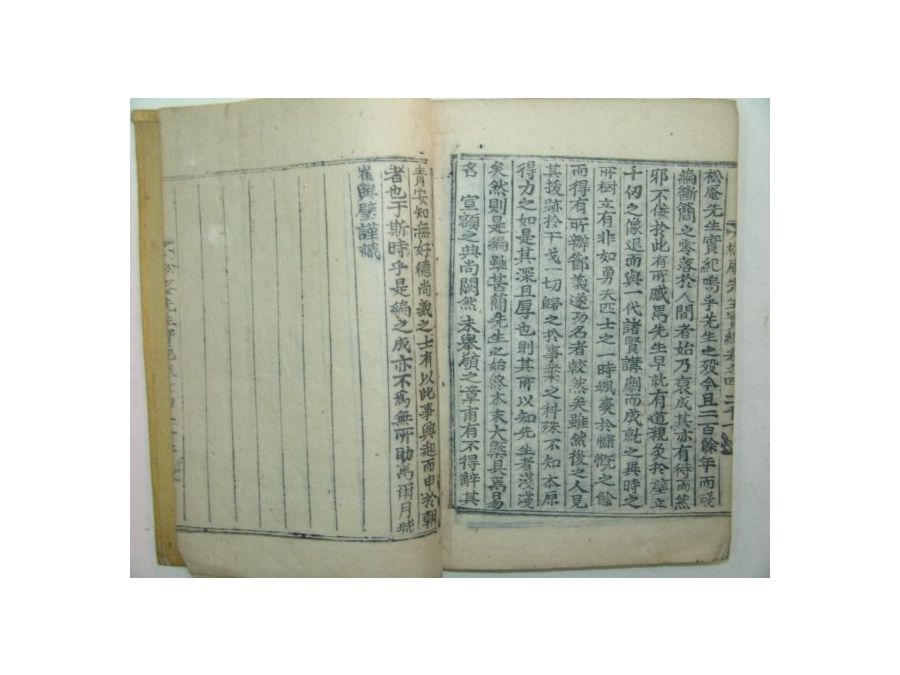 松庵先生實紀嗚乎先生之歿今且二百餘年而殘
編斷簡之零落於人間者始乃裒成其亦有待而然
邪不佞於此有所感焉先生早就有道親灸於壁立
千仞之像退而與一代諸賢講劘而成就之異時之
所樹立有非如勇夫匹士之一時颯爽於慷慨之餘
而得有所辦節義遂功名者較然矣雖然後之人見
其拔跡於干戈一切歸之於事案之科殊不知本原
得力之如是其深且厚也則其所以知先生者淺淺
矣然則是編雖甚簡先生之始終本末大槩具焉易
名 宣額之典尚闕然未舉嶺之章甫有不得辭其
責安知無好德尚義之士有以此事興起而申於朝
者也于斯時乎是編之成亦不爲無所助焉爾月城
崔興璧謹識
松庵先生實紀卷之四 二十一